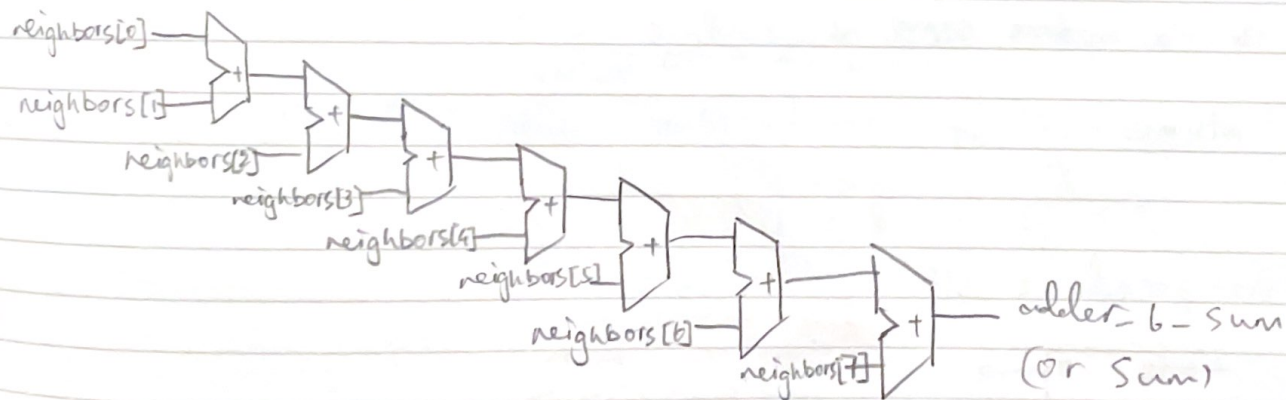 neighbors[0]
+
neighbors[1]
+
neighbors[2]
+
neighbors[3]
+
neighbors[4]
+
neighbors[5]
+
neighbors[6]
+
neighbors[7]
adder_6_sum
(or sum)